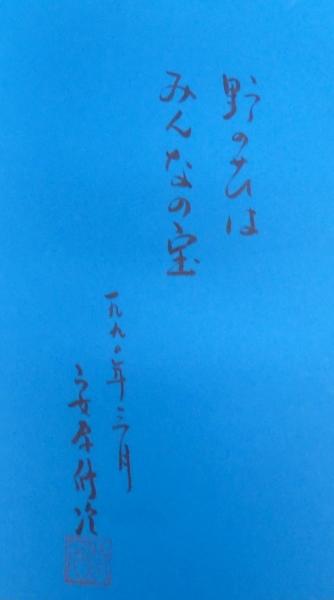 野の花は
みんなの宝
一九九〇年三月
安原修次